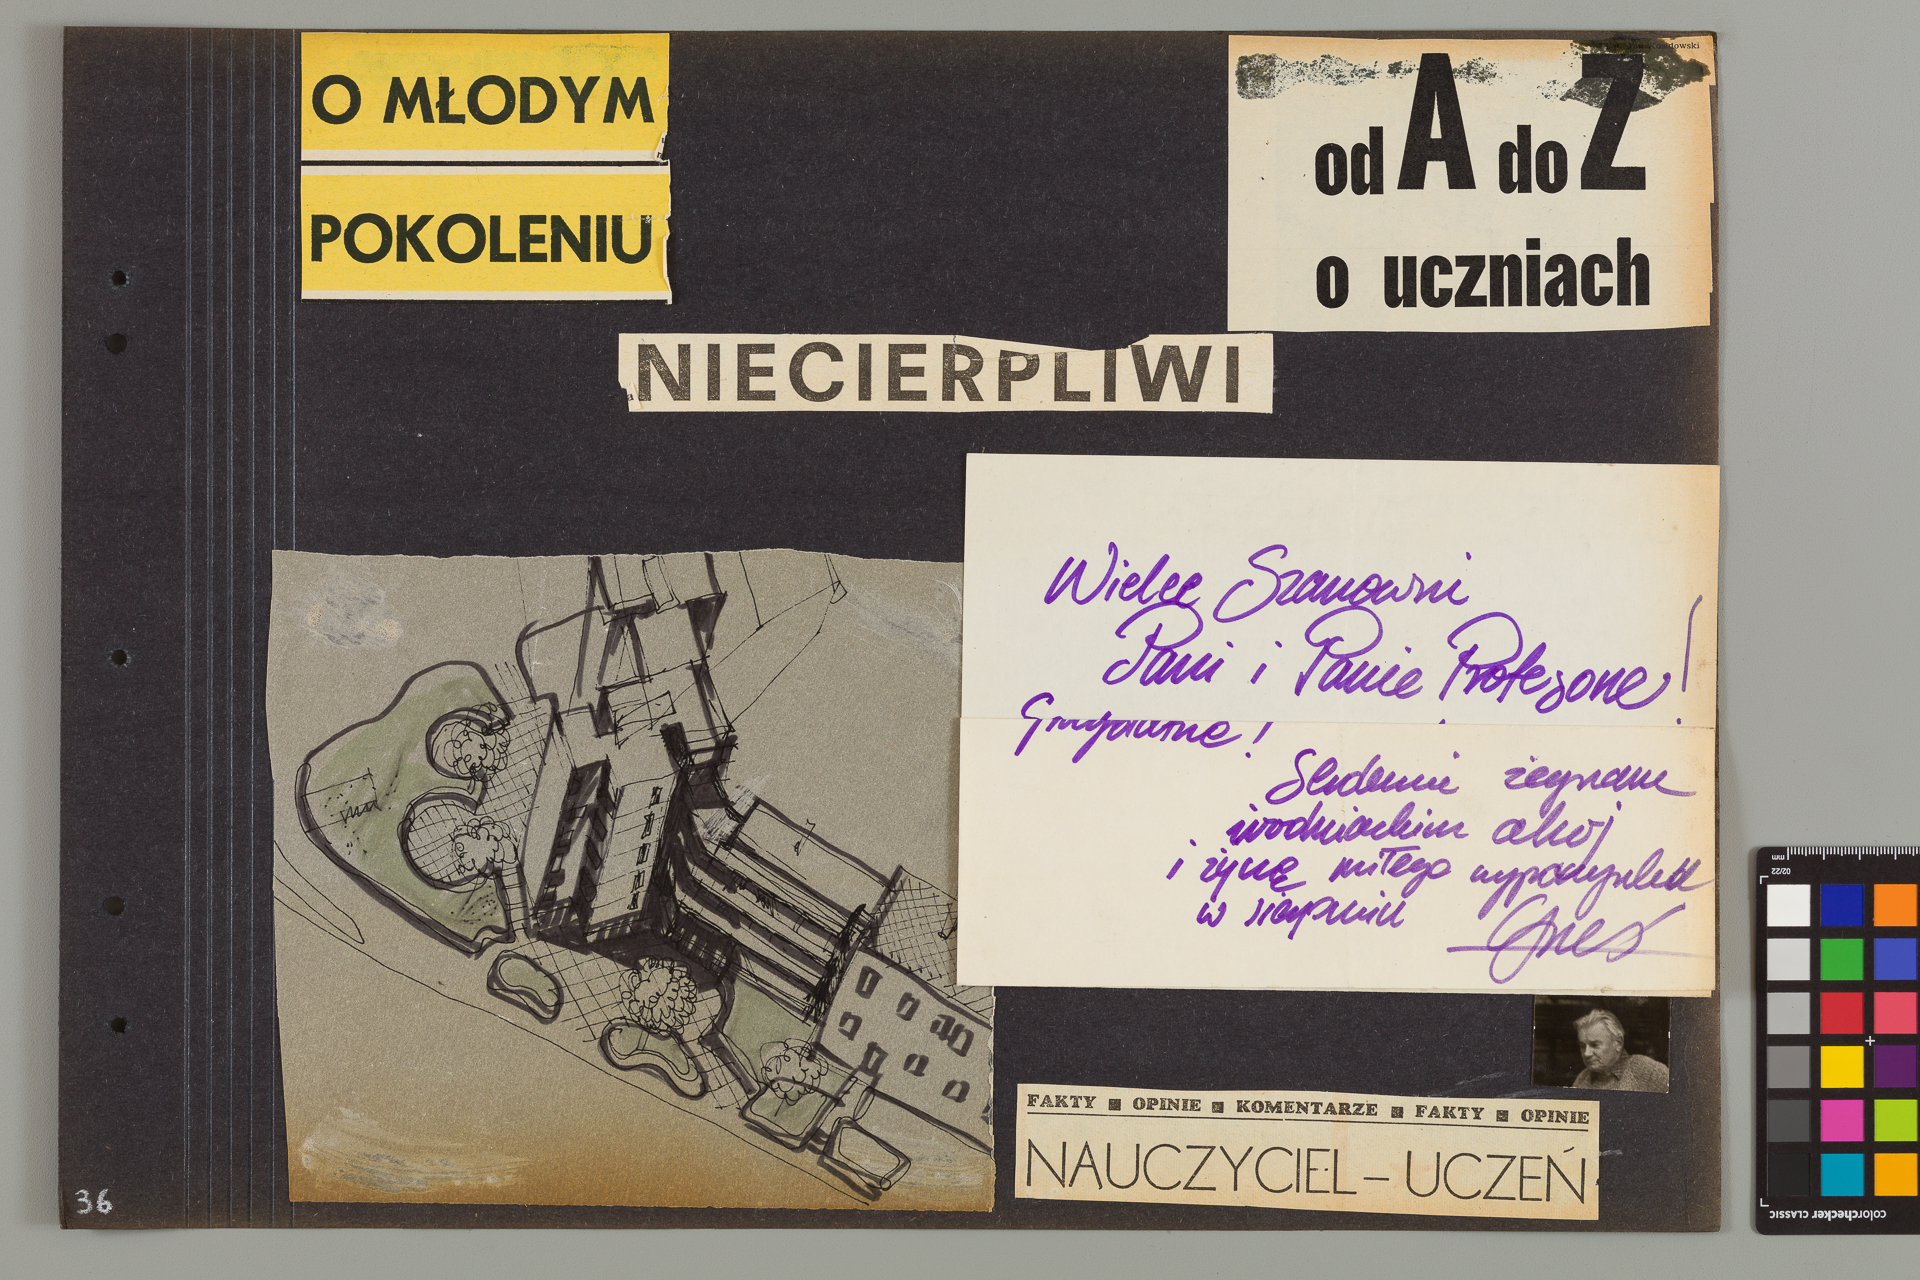 O MŁODYM
POKOLENIU
od A do Z
o uczniach
NIECIERPLIWI
Wielce Szanowni
Pani i Panie Profesorze!
Serdecznie żegnam
wodniackim ahoj
i życzę miłego wypoczynku
w sierpniu
FAKTY ■ OPINIE ■ KOMENTARZE ■ FAKTY ■ OPINIE
NAUCZYCIEL – UCZEŃ
36
mm
02/22
colorchecker CLASSIC